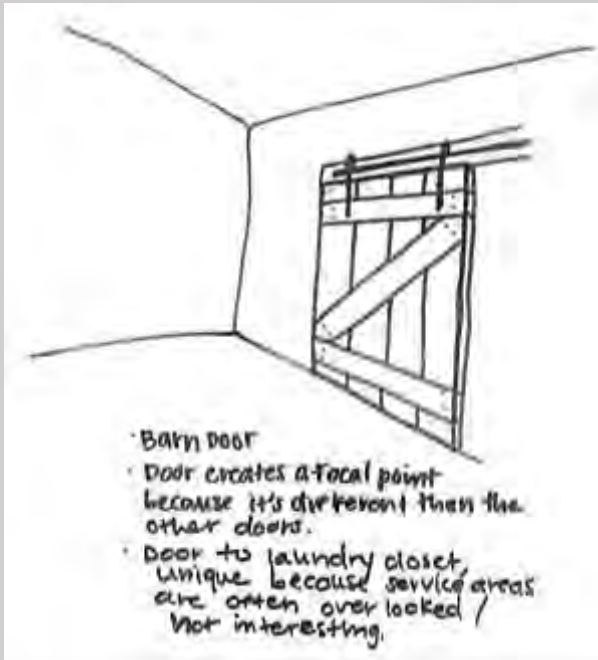 · Barn Door
· Door creates a focal point
because it's different than the
other doors.
· Door to laundry closet,
unique because service areas
are often over looked /
not interesting.